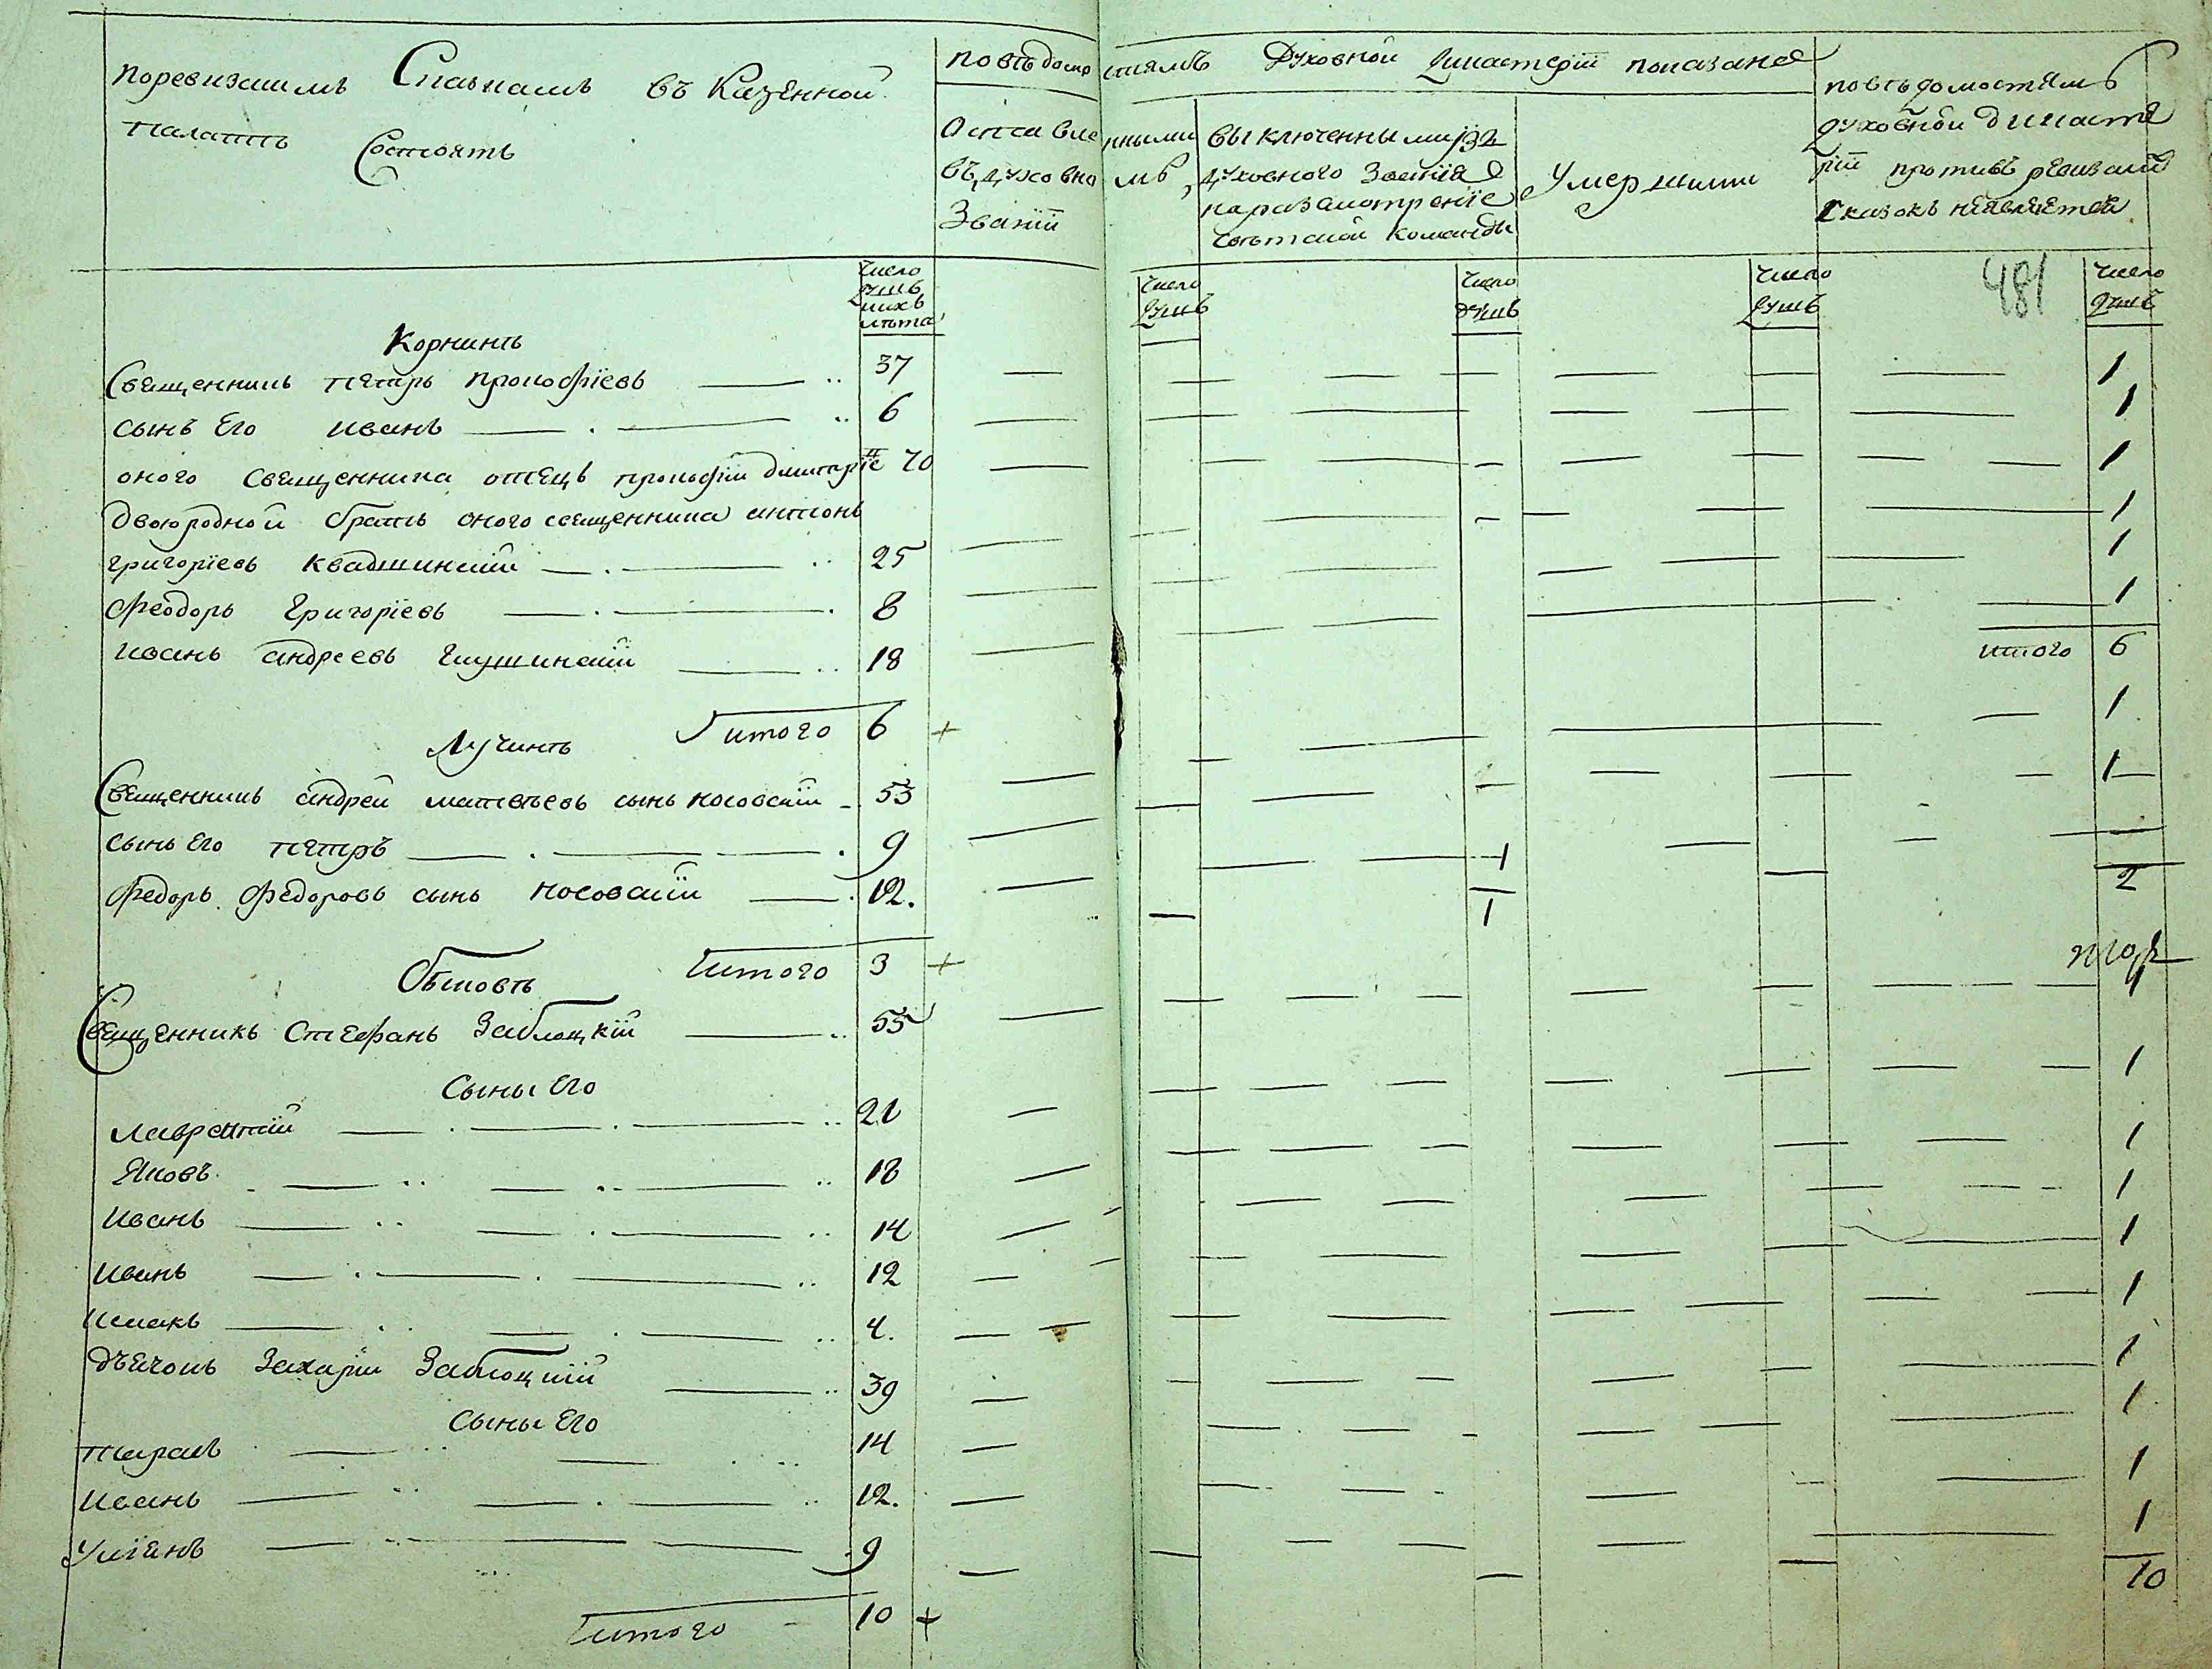 поревизаимъ Спаскамъ въ Казенной
палатѣ Состоятъ
поведомостиямъ Духовной Дикастерїи показано
Оставленными
въ духовномъ
Званїи
выключенными изъ
духовного Званїя
на разсмотренїе
свѣтской команды
Умершими
поведомостямъ
духовной дикасте
рїи противъ ревизкихъ
сказокъ неявляется
число
душъ
ихъ
лѣта
число
душъ
число
душъ
число
душъ
481
число
душъ
Корнинѣ
Священникъ петръ прокофїевъ 37 1
сынъ Его иванъ 6 1
оного священника отецъ прокофїи дмитрїе 70 1
двоюродной братъ оного священника антонъ 1
григорїевъ Квашинскїй 25 1
Феодоръ Григорїевъ 8 1
иванъ андреевъ Глушинскїй 18
итого 6
Итого 6 + 1
Лучинѣ
Священникъ андрей матвѣевъ сынъ носовскїй 53 1
сынъ Его петръ 9
федоръ федоровъ сынъ носовскїй 12. 1 2
1
Итого 3 +
тожъ
Священникъ Стефанъ Заблоцкїй 55 1
Сыны Его
лаврентїй 21 1
Яковъ 18 1
Иванъ 14 1
Иванъ 12 1
Исаакъ 4. 1
дьячокъ Захарїи Заблоцкїй 39 1
Сыны Его
тарасъ 14 1
Иванъ 12. 1
Улїянъ 9 1
10
Итого 10 +